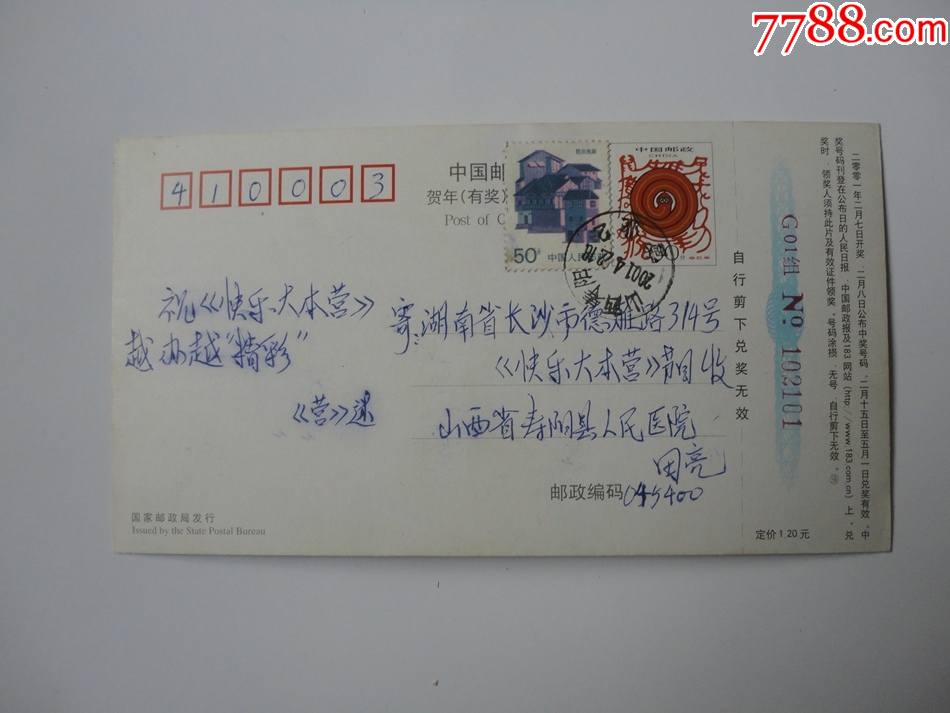 7788.com
410003
中国邮
贺年(有奖)
Post of C
50分
中国人民
中国邮政
CHINA
山西寿阳
2001.4.2.18
祝《快乐大本营》
越办越"精彩"
《营》迷
寄:湖南省长沙市德雅路314号
《快乐大本营》节目收
山西省寿阳县人民医院
田亮
邮政编码045400
国家邮政局发行
Issued by the State Postal Bureau
自行剪下兑奖无效
G01组 No 102101
定价1.20元
二零零一年二月七日开奖,二月八日公布中奖号码,二月十五日至五月一日兑奖有效。中
奖号码刊登在公布日的人民日报、中国邮政报及183网站(http://www.183.com.cn)上,兑
奖时,领奖人须持此片及有效证件领奖。号码涂损、无号、自行剪下无效。